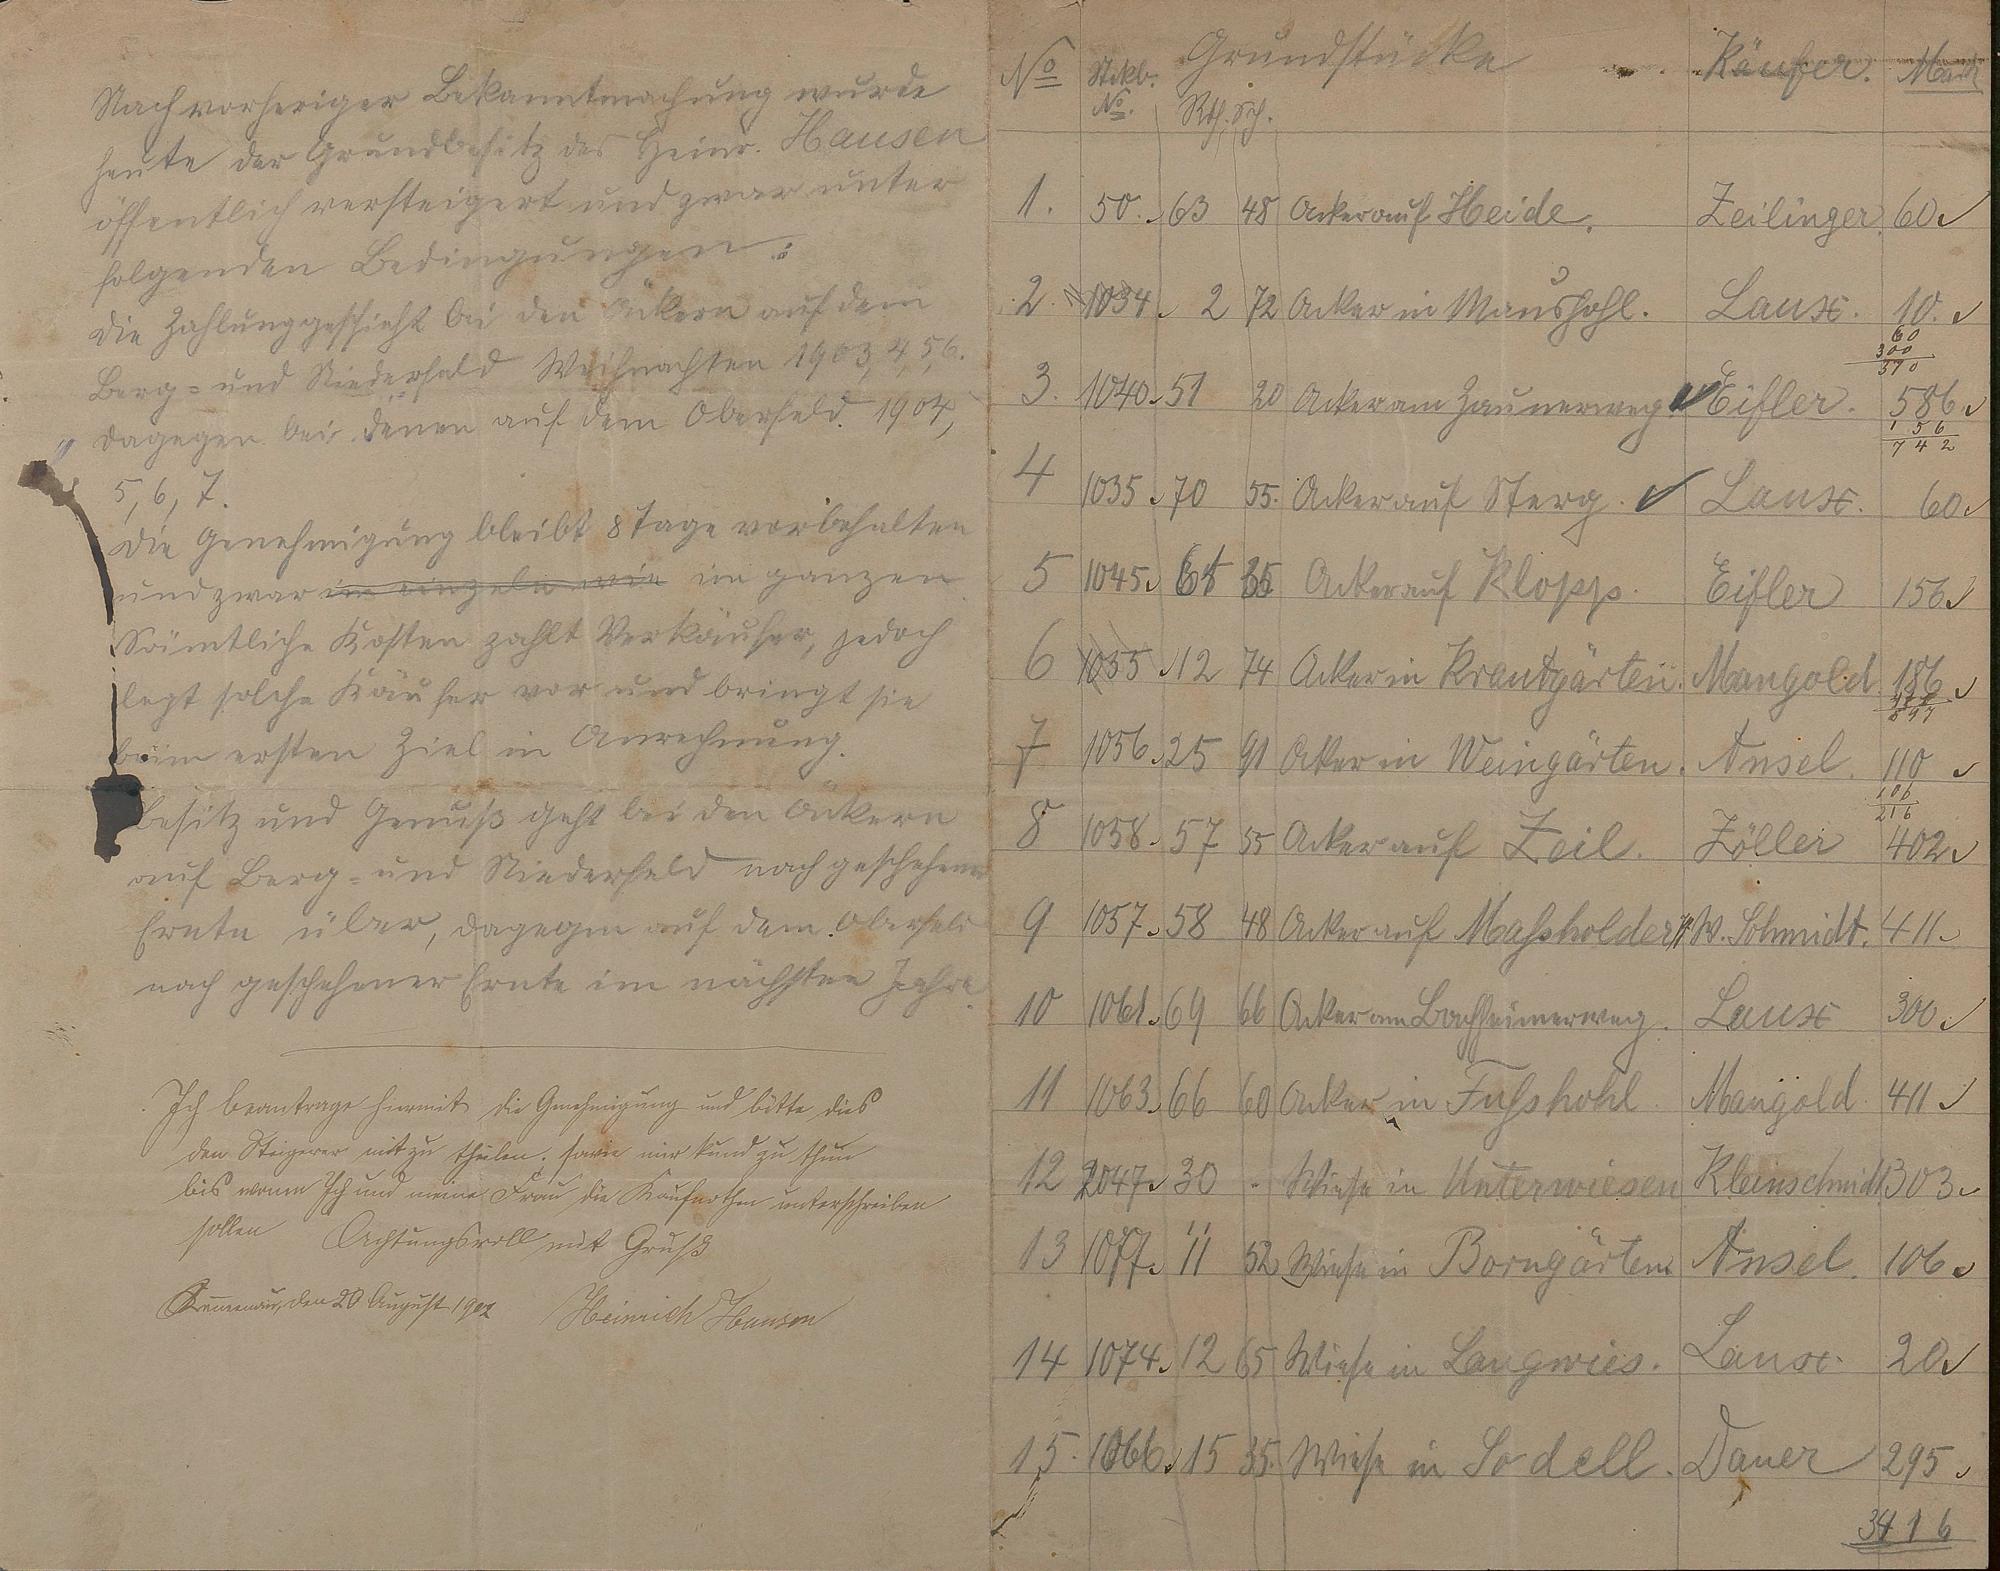 Nach vorheriger Bekanntmachung wurde
heute der Grundbesitz des Heinr. Hausen
öffentlich versteigert und zwar unter
folgenden Bedingungen:
Die Zahlung geschieht bei den Äckern auf dem
Berg= und Niederfeld Weihnachten 1903, 4, 5, 6.
dagegen bei denen auf dem Oberfeld 1904,
5, 6, 7.
Die Genehmigung bleibt 8 Tage vorbehalten
und zwar im einzeln wie im ganzen
Sämtliche Kosten zahlt Verkäufer, jedoch
legt solche Käufer vor und bringt sie
beim ersten Ziel in Anrechnung.
Besitz und Genuß geht bei den Äckern
auf Berg= und Niederfeld nach geschehener
Ernte über, dagegen auf dem Oberfeld
nach geschehener Ernte im nächsten Jahre.
Ich beantrage hiermit die Genehmigung und bitte dies
den Steigerer mitzu theilen, sowie mir kund zu thun
bis wann Ich und meine Frau die Kaufnothen unterschreiben
sollen Achtungsvoll mit Gruß
den 20 August 1902 Heinrich Hausen
No Stckb. No. Grundstücke Käufer. Mark
Rth. Sch.
1. 50. 63 48 Acker auf Heide. Zeilinger 60
2. 1034. 2 72 Acker in Maushohl. Laux. 10.
60
300
370
3. 1040. 51 20 Acker am Zaunerweg Eifler. 586
156
742
4 1035. 70 55. Acker auf Sterg. Laux. 60
5 1045. 65 35 Acker auf Klopp. Eifler 156
6 1055. 12 74 Acker in Krautgärten. Mangold 186
597
7 1056. 25 91 Acker in Weingärten. Ansel. 110
106
216
8 1058. 57 55 Acker auf Zeil. Zöller 402
9 1057. 58 48 Acker auf Maßholder W. Schmidt. 411
10 1061. 69 66 Acker am Bachheimerweg. Laux 300
11 1063. 66 60 Acker in Fuhshohl Mangold. 411
12 2047. 30 - Wiese in Unterwiesen Kleinschmidt 303
13 1077. 11 52 Wiese in Borngärten Ansel. 106
14 1074. 12 65 Wiese in Langwies. Laux. 20
15. 1066. 15 35. Wiese in Sodell. Dauer 295
3416